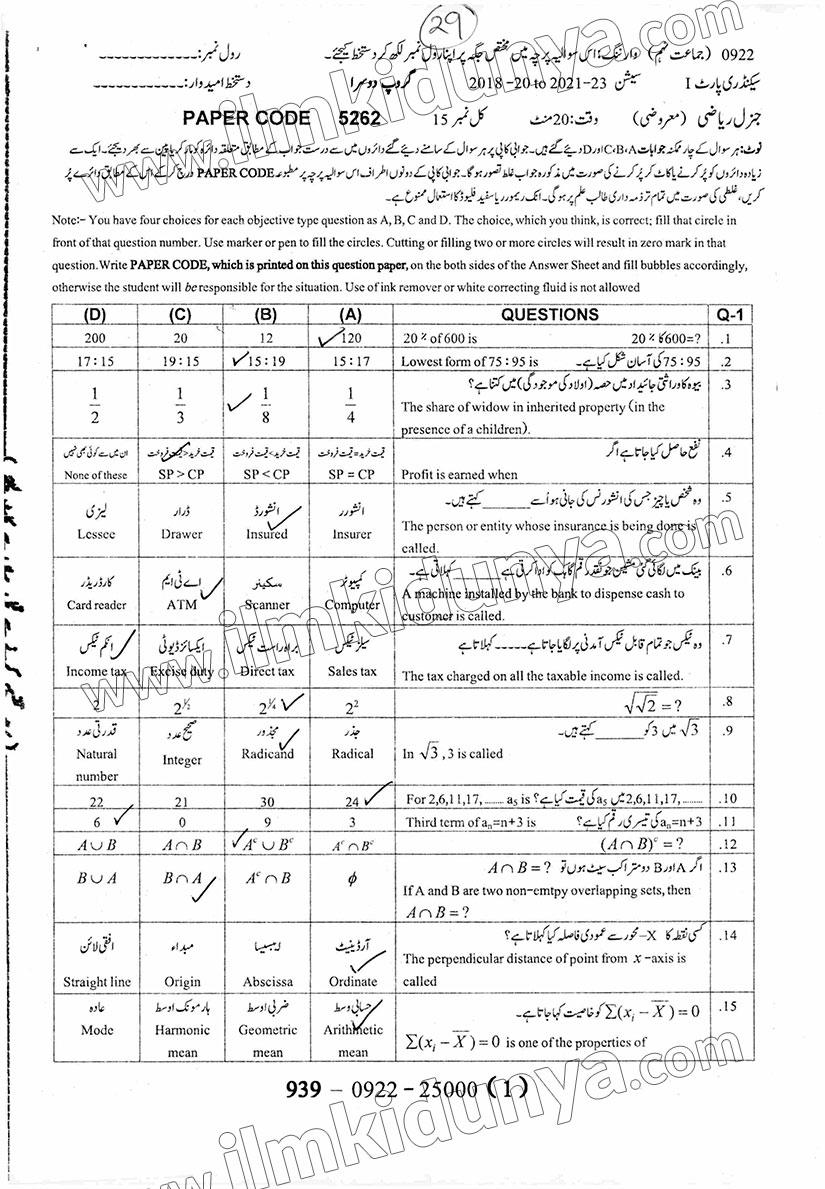 29
0922 (جماعت نہم) وارننگ: اس سوالیہ پرچہ میں مختص جگہ پر اپنا رول نمبر لکھ کر دستخط کیجئے۔ رول نمبر: -------------
سیکنڈری پارٹ I سیشن 2018-20 to 2021-23 گروپ دوسرا دستخط امیدوار: ------------
جنرل ریاضی (معروضی) وقت: 20 منٹ کل نمبر 15 PAPER CODE 5262
نوٹ: ہر سوال کے چار ممکنہ جوابات A، B، C اور D دیئے گئے ہیں۔ جوابی کاپی پر ہر سوال کے سامنے دیئے گئے دائروں میں سے درست جواب کے مطابق متعلقہ دائرہ کو مارکر یا پین سے بھر دیجئے۔ ایک سے
زیادہ دائروں کو پُر کرنے یا کاٹ کر پُر کرنے کی صورت میں مذکورہ جواب غلط تصور ہوگا۔ جوابی کاپی کے دونوں اطراف اس سوالیہ پرچہ پر مطبوعہ PAPER CODE درج کر کے اس کے مطابق دائرے پُر
کریں، غلطی کی صورت میں تمام تر ذمہ داری طالب علم پر ہوگی۔ انک ریموور یا سفید فلیوڈ کا استعمال ممنوع ہے۔
Note:- You have four choices for each objective type question as A, B, C and D. The choice, which you think, is correct; fill that circle in
front of that question number. Use marker or pen to fill the circles. Cutting or filling two or more circles will result in zero mark in that
question. Write PAPER CODE, which is printed on this question paper, on the both sides of the Answer Sheet and fill bubbles accordingly,
otherwise the student will be responsible for the situation. Use of ink remover or white correcting fluid is not allowed
(D) (C) (B) (A) QUESTIONS Q-1
200 20 12 120 20 % of 600 is 20 % کا 600=? .1
17:15 19:15 15:19 15:17 Lowest form of 75 : 95 is 75 : 95 کی آسان شکل کیا ہے۔ .2
بیوہ کا وراثتی جائیداد میں حصہ (اولاد کی موجودگی) میں کتنا ہے؟ .3
1/2 1/3 1/8 1/4 The share of widow in inherited property (in the
presence of a children).
ان میں سے کوئی بھی نہیں قیمت خرید > قیمت فروخت قیمت خرید < قیمت فروخت قیمت خرید = قیمت فروخت نفع حاصل کیا جاتا ہے اگر .4
None of these SP > CP SP < CP SP = CP Profit is earned when
لیزی ڈرار انشورڈ انشورر وہ شخص یا چیز جس کی انشورنس کی جانی ہو اُسے ______ کہتے ہیں۔ .5
Lessee Drawer Insured Insurer The person or entity whose insurance is being done is
called.
کارڈ ریڈر اے ٹی ایم سکینر کمپیوٹر بینک میں لگائی گئی مشین جو نقد رقم گاہک کو ادا کرتی ہے ______ کہلاتی ہے۔ .6
Card reader ATM Scanner Computer A machine installed by the bank to dispense cash to
customer is called.
انکم ٹیکس ایکسائز ڈیوٹی براہ راست ٹیکس سیلز ٹیکس وہ ٹیکس جو تمام قابل ٹیکس آمدنی پر لگایا جاتا ہے ----- کہلاتا ہے .7
Income tax Excise duty Direct tax Sales tax The tax charged on all the taxable income is called.
2 2^½ 2^¼ 2² √√2 = ? .8
قدرتی عدد صحیح عدد مجذور جذر √3 میں 3 کو ______ کہتے ہیں۔ .9
Natural number Integer Radicand Radical In √3, 3 is called
22 21 30 24 For 2,6,11,17, ........ a₅ is ? 2,6,11,17, ........ میں a₅ کی قیمت کیا ہے؟ .10
6 0 9 3 Third term of aₙ=n+3 is aₙ=n+3 کی تیسری رقم کیا ہے؟ .11
A∪B A∩B Aᶜ∪Bᶜ Aᶜ∩Bᶜ (A∩B)ᶜ = ? .12
اگر A اور B دو متراکب سیٹ ہوں تو A∩B = ? .13
B∪A B∩A Aᶜ∩B ϕ If A and B are two non-emtpy overlapping sets, then
A∩B = ?
افقی لائن مبداء ایبسیسا آرڈینیٹ کسی نقطہ کا X-محور سے عمودی فاصلہ کیا کہلاتا ہے؟ .14
Straight line Origin Abscissa Ordinate The perpendicular distance of point from x-axis is
called
عادہ ہارمونک اوسط ضربی اوسط حسابی اوسط Σ(xᵢ − X̄) = 0 کو خاصیت کہا جاتا ہے۔ .15
Mode Harmonic mean Geometric mean Arithmetic mean Σ(xᵢ − X̄) = 0 is one of the properties of
939 – 0922 – 25000 (1)
www.ilmkidunya.com